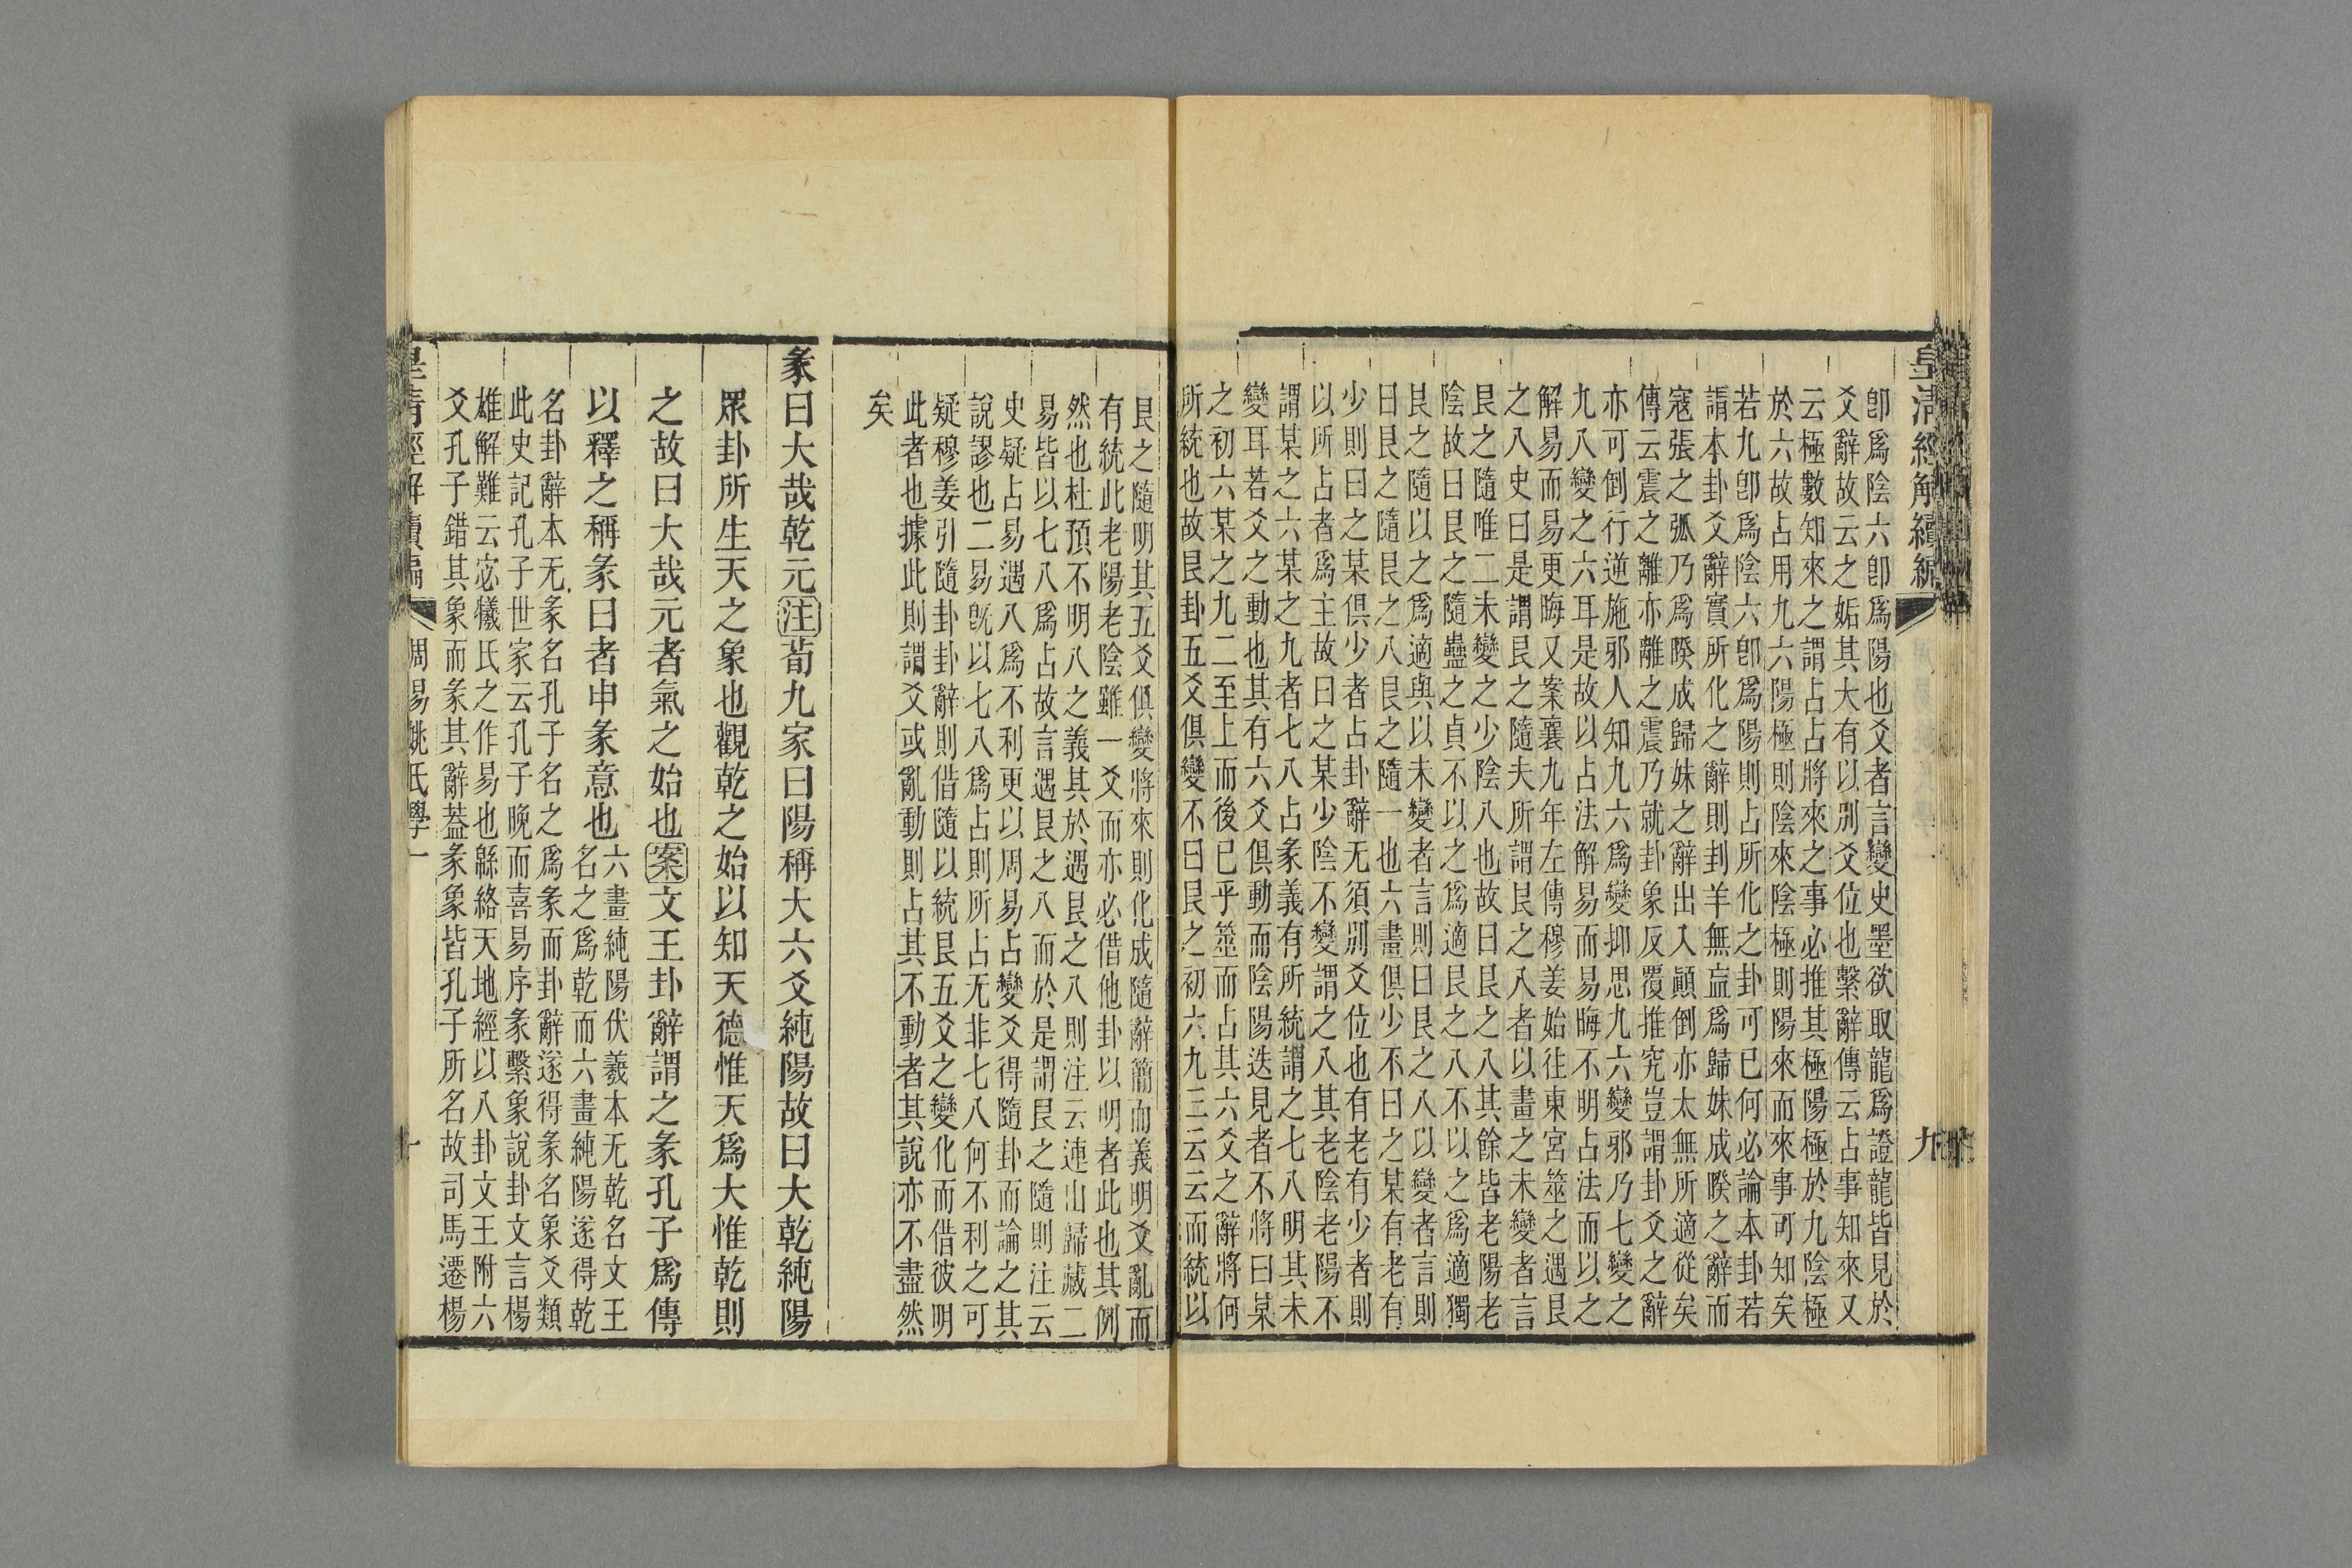 皇清經解續編
九
卽爲陰六卽爲陽也爻者言變史墨欲取龍爲證龍皆見於
爻辭故云之姤其大有以別爻位也繫辭傳云占事知來又
云極數知來之謂占占將來之事必推其極陽極於九陰極
於六故占用九六陽極則陰來陰極則陽來而來事可知矣
若九卽爲陰六卽爲陽則占所化之卦可已何必論本卦若
謂本卦爻辭實所化之辭則刲羊無衁爲歸妹成睽之辭而
寇張之弧乃爲睽成歸妹之辭出入顚倒亦太無所適從矣
傳云震之離亦離之震乃就卦象反覆推究豈謂卦爻之辭
亦可倒行逆施邪人知九六爲變抑思九六變邪乃七變之
九八變之六耳是故以占法解易而易晦不明占法而以之
解易而易更晦又案襄九年左傳穆姜始往東宮筮之遇艮
之八史曰是謂艮之隨夫所謂艮之八者以畫之未變者言
艮之隨唯二未變之少陰八也故曰艮之八其餘皆老陽老
陰故曰艮之隨蠱之貞不以之爲適艮之八不以之爲適獨
艮之隨以之爲適與以未變者言則曰艮之八以變者言則
曰艮之隨艮之八艮之隨一也六畫俱少不曰之某有老有
少則曰之某俱少者占卦辭无須別爻位也有老有少者則
以所占者爲主故曰之某少陰不變謂之八其老陰老陽不
謂某之六某之九者七八占彖義有所統謂之七八明其未
變耳若爻之動也其有六爻俱動而陰陽迭見者不將曰某
之初六某之九二至上而後已乎筮而占其六爻之辭將何
所統也故艮卦五爻俱變不曰艮之初六九三云云而統以
艮之隨明其五爻俱變將來則化成隨辭簡而義明爻亂而
有統此老陽老陰雖一爻而亦必借他卦以明者此也其例
然也杜預不明八之義其於遇艮之八則注云連山歸藏二
易皆以七八爲占故言遇艮之八而於是謂艮之隨則注云
史疑占易遇八爲不利更以周易占變爻得隨卦而論之其
說謬也二易旣以七八爲占則所占无非七八何不利之可
疑穆姜引隨卦卦辭則借隨以統艮五爻之變化而借彼明
此者也據此則謂爻或亂動則占其不動者其說亦不盡然
矣
彖曰大哉乾元注荀九家曰陽稱大六爻純陽故曰大乾純陽
眾卦所生天之象也觀乾之始以知天德惟天爲大惟乾則
之故曰大哉元者氣之始也案文王卦辭謂之彖孔子爲傳
以釋之稱彖曰者申彖意也六畫純陽伏羲本无乾名文王
名之爲乾而六畫純陽遂得乾
名卦辭本无彖名孔子名之爲彖而卦辭遂得彖名象爻類
此史記孔子世家云孔子晚而喜易序彖繫象說卦文言楊
雄解難云宓犧氏之作易也緜絡天地經以八卦文王附六
爻孔子錯其象而彖其辭葢彖象皆孔子所名故司馬遷楊
皇清經解續編
周易姚氏學一
十